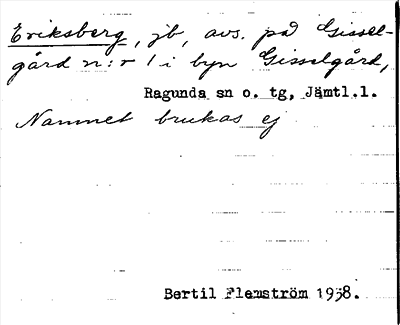 Eriksberg, jb, avs. på Gissel-
gård n:r 1 i byn Gisselgård,
Ragunda sn o. tg, Jämtl.l.
Namnet brukas ej
Bertil Flemström 1938.